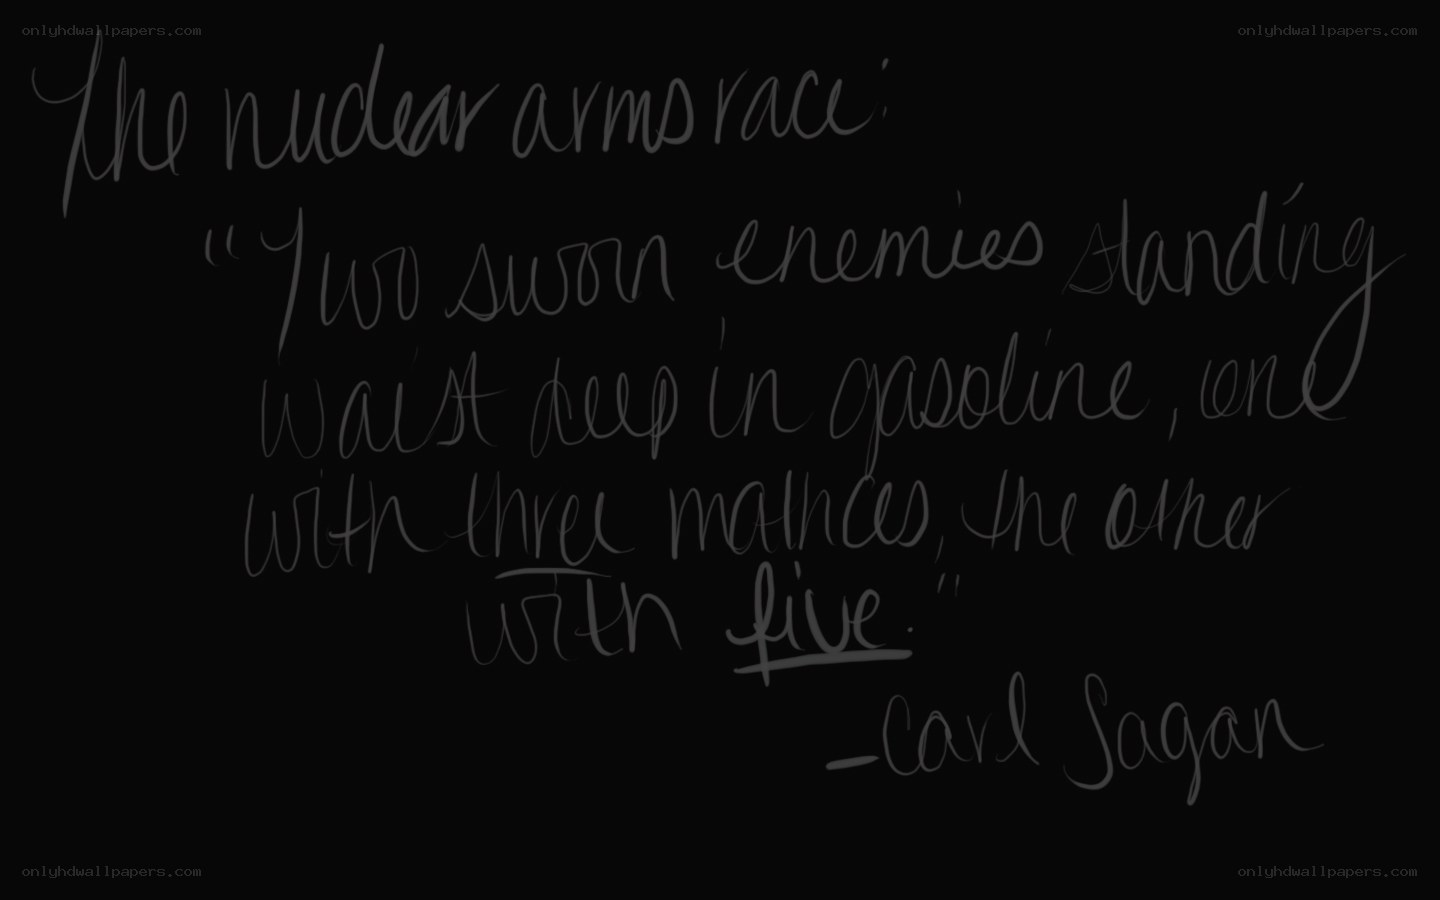 onlyhdwallpapers.com onlyhdwallpapers.com
The nuclear arms race:
"Two sworn enemies standing
waist deep in gasoline, one
with three mathces, the other
with five."
-Carl Sagan
onlyhdwallpapers.com onlyhdwallpapers.com